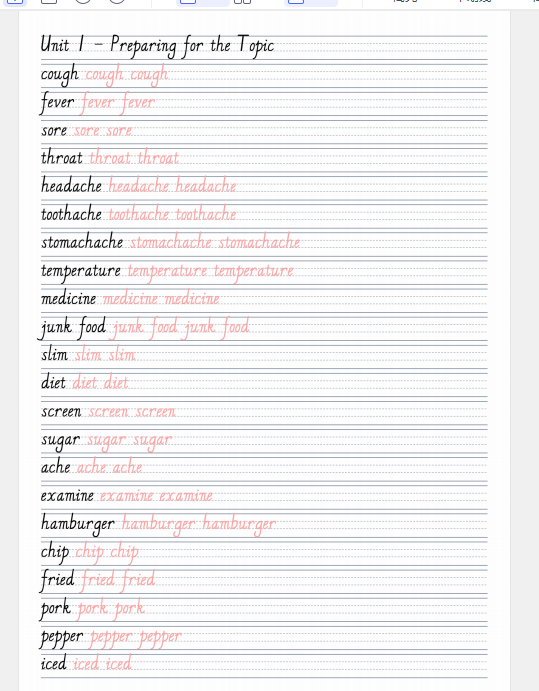 Unit 1 - Preparing for the Topic
cough cough cough
fever fever fever
sore sore sore
throat throat throat
headache headache headache
toothache toothache toothache
stomachache stomachache stomachache
temperature temperature temperature
medicine medicine medicine
junk food junk food junk food
slim slim slim
diet diet diet
screen screen screen
sugar sugar sugar
ache ache ache
examine examine examine
hamburger hamburger hamburger
chip chip chip
fried fried fried
pork pork pork
pepper pepper pepper
iced iced iced